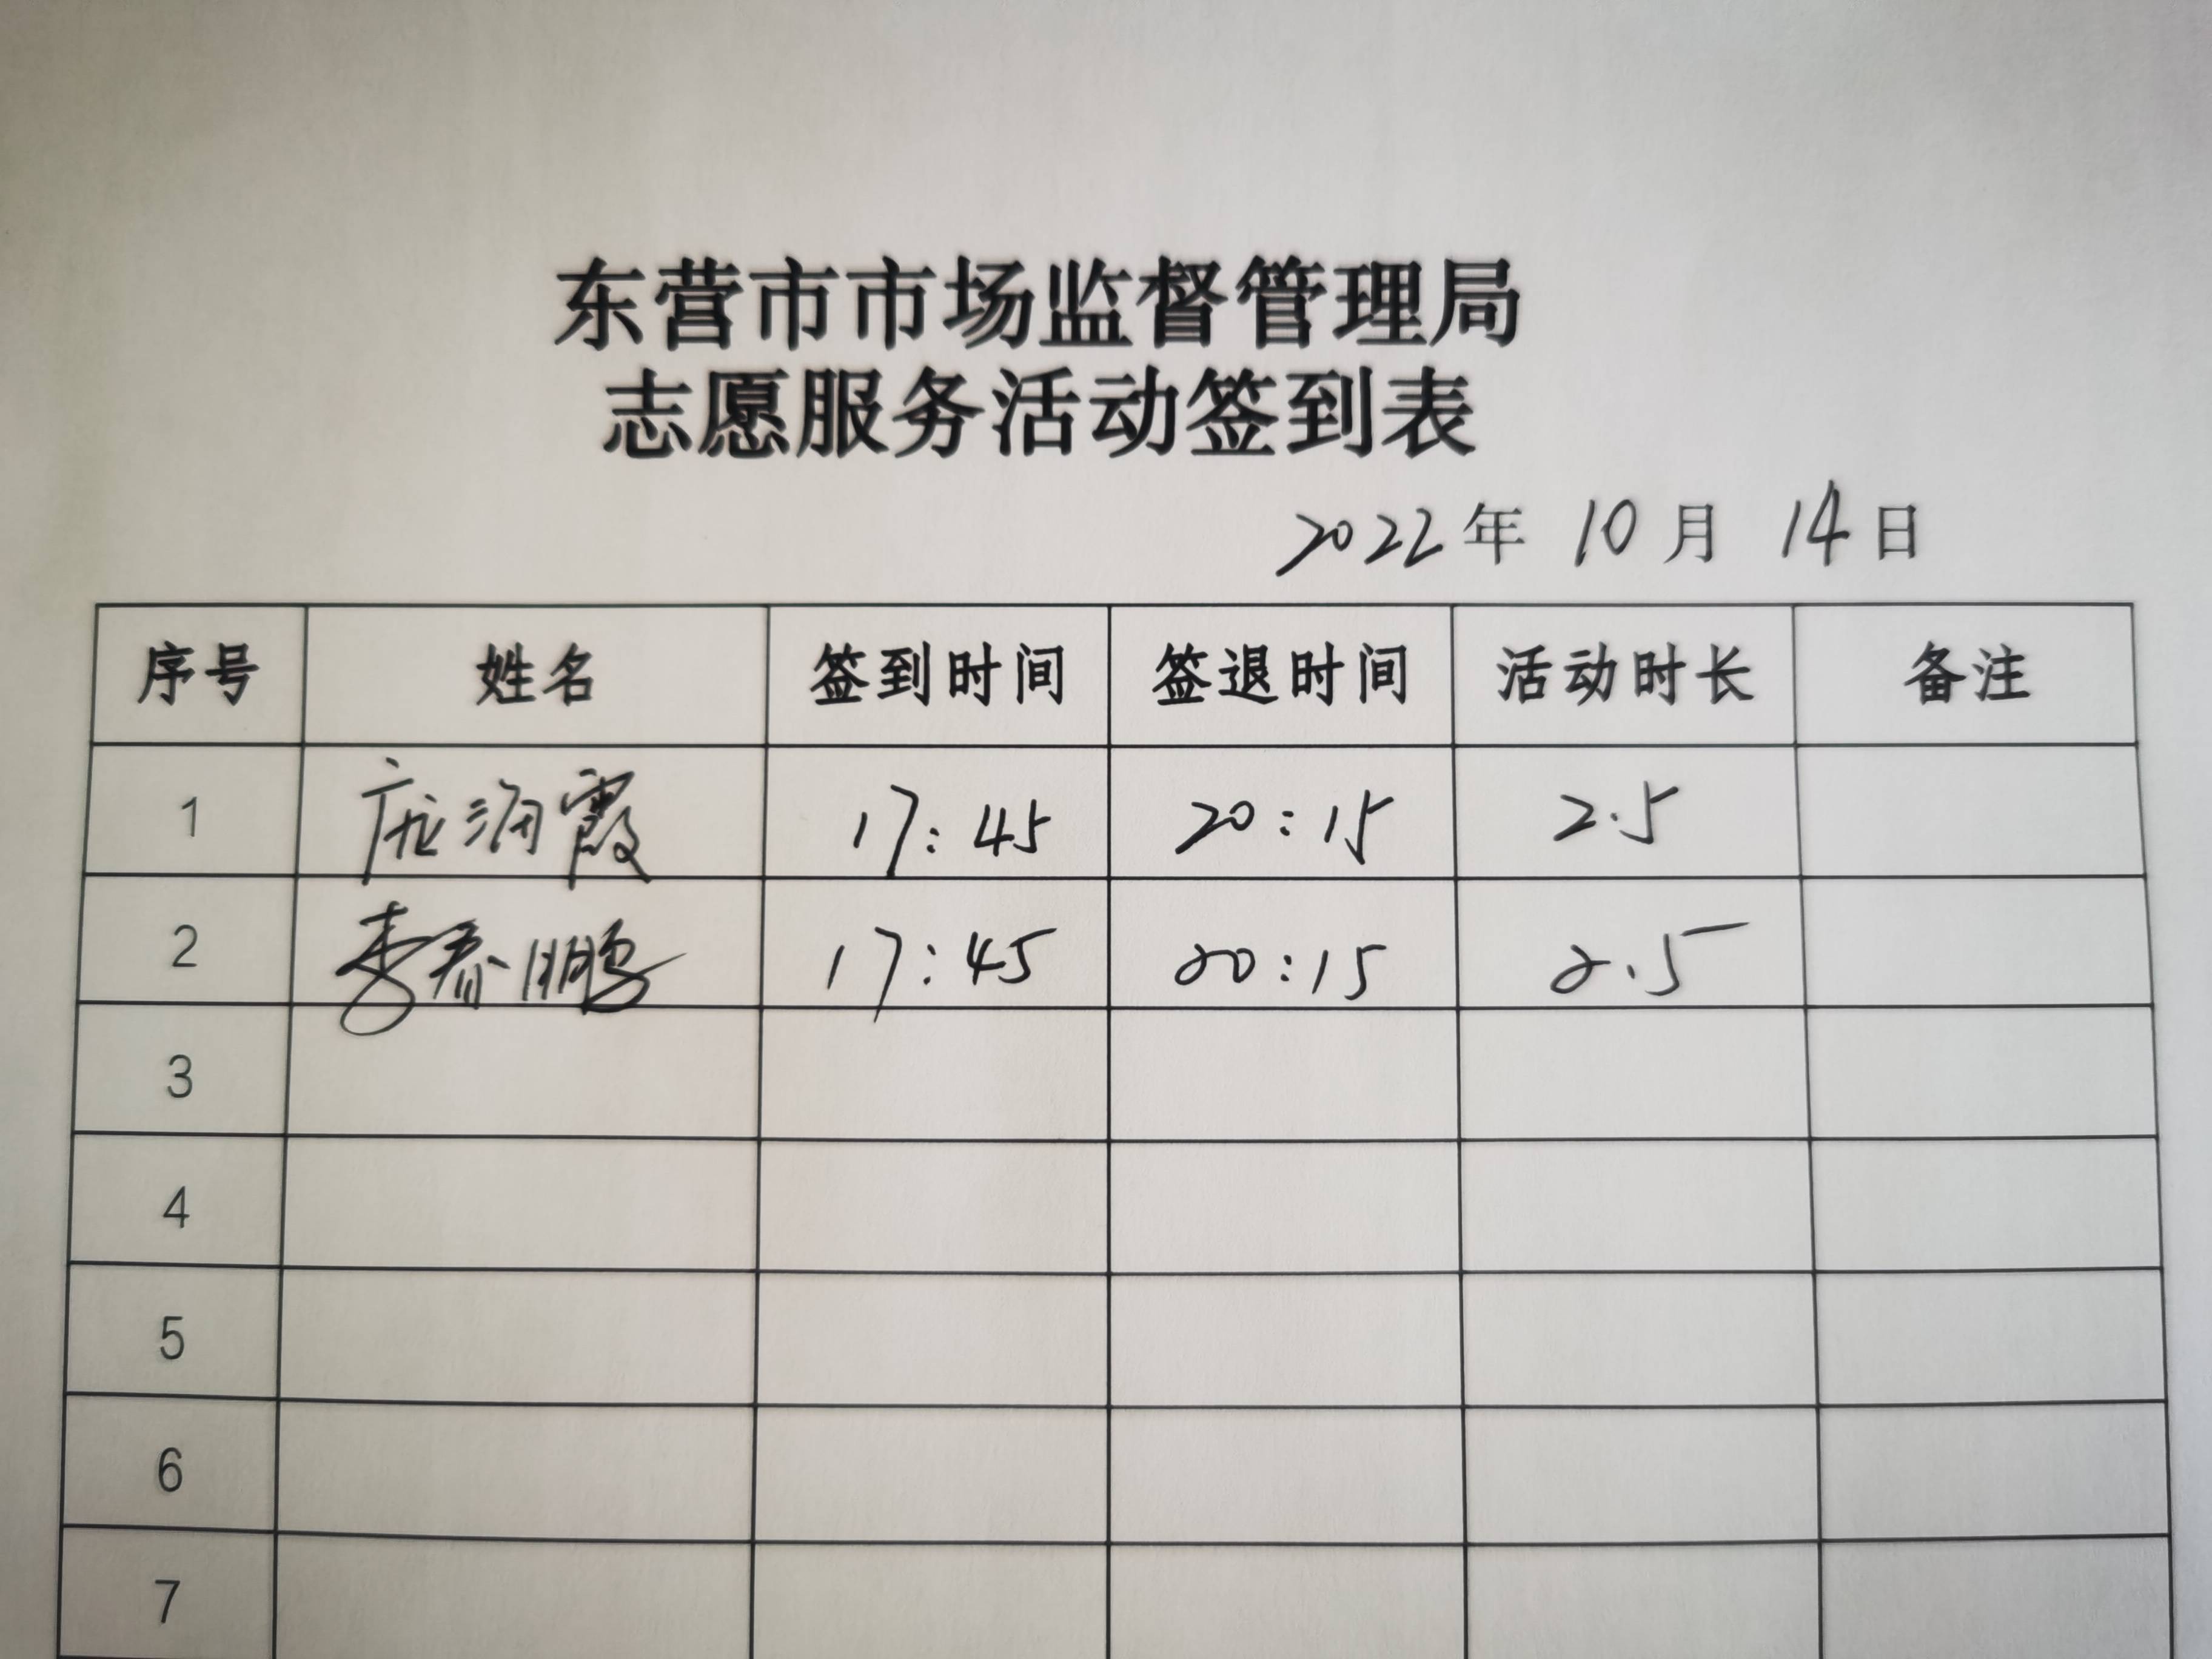 东营市市场监督管理局
志愿服务活动签到表
2022年 10月 14日
序号 姓名 签到时间 签退时间 活动时长 备注
1 庞润霞 17:45 20:15 2.5
2 李春鹏 17:45 20:15 2.5
3
4
5
6
7